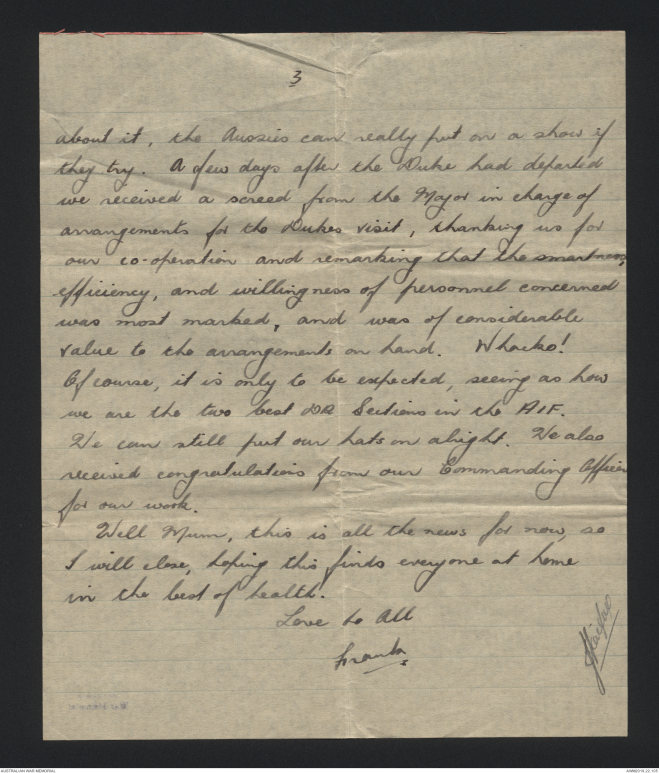 3
about it, the Aussies can really put on a show if
they try. A few days after the Duke had departed
we received a screed from the Major in charge of
arrangements for the Dukes visit, thanking us for
our co-operation and remarking that the smartness,
efficiency, and willingness of personnel concerned
was most marked, and was of considerable
value to the arrangements on hand. Whacko!
Of course, it is only to be expected, seeing as how
we are the two best DR Sections in the AIF.
We can still put our hats on alright. We also
received congratulations from our Commanding Officer
for our work.
Well Mum, this is all the news for now, so
I will close, hoping this finds everyone at home
in the best of health.
Love to All
Frank.
AUSTRALIAN WAR MEMORIAL